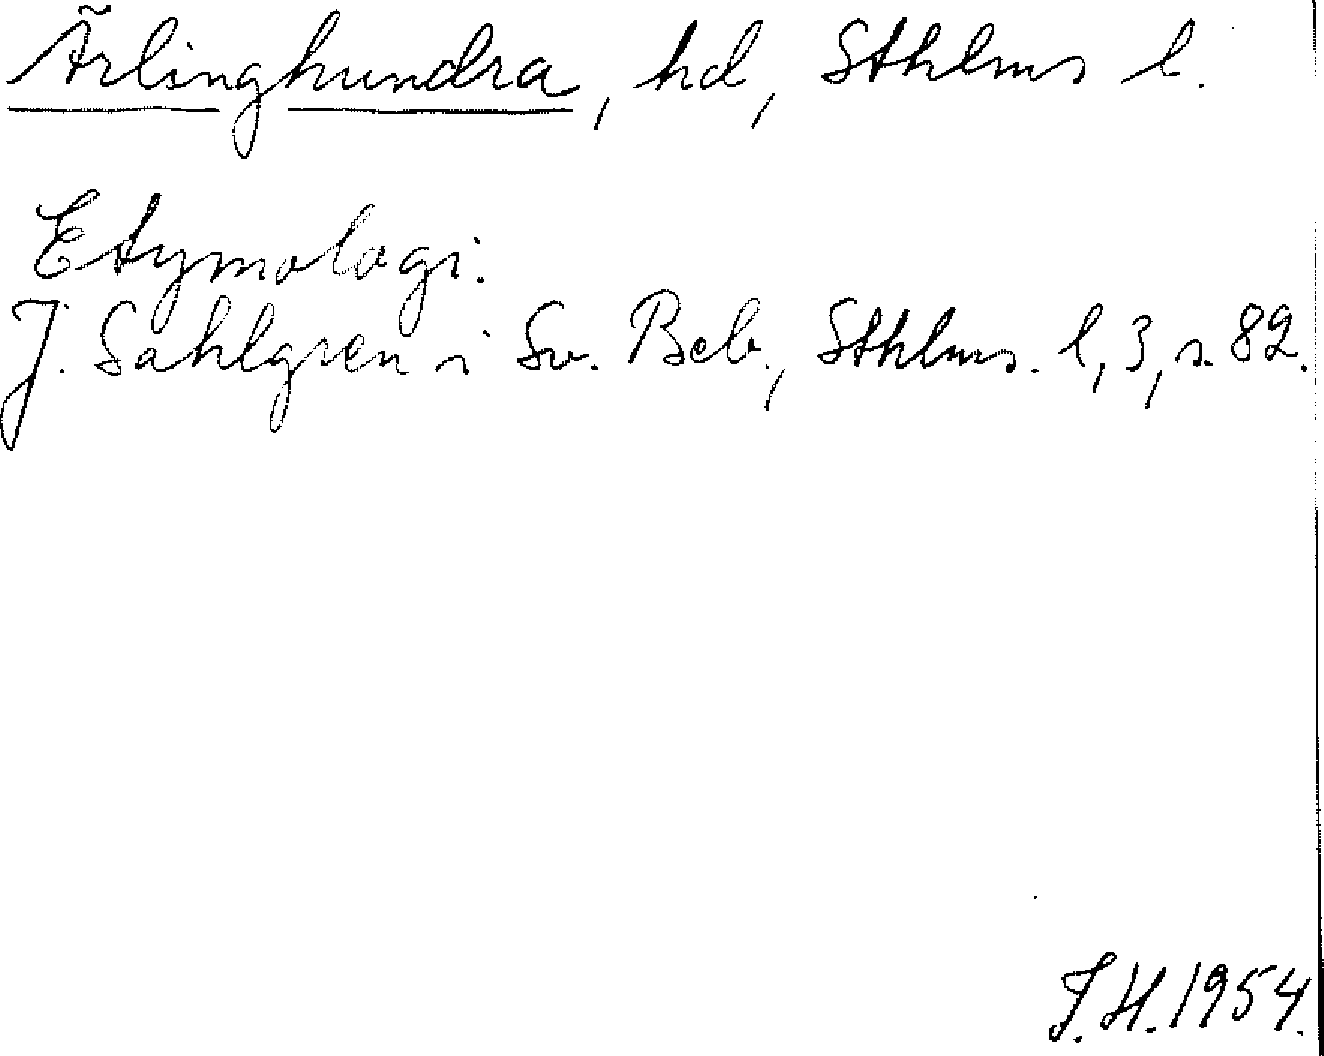 Ärlinghundra, hd, Sthlms l.
Etymologi.
J. Sahlgren i Sv. Beb., Sthlms. l, 3, s. 82.
J.H. 1954.